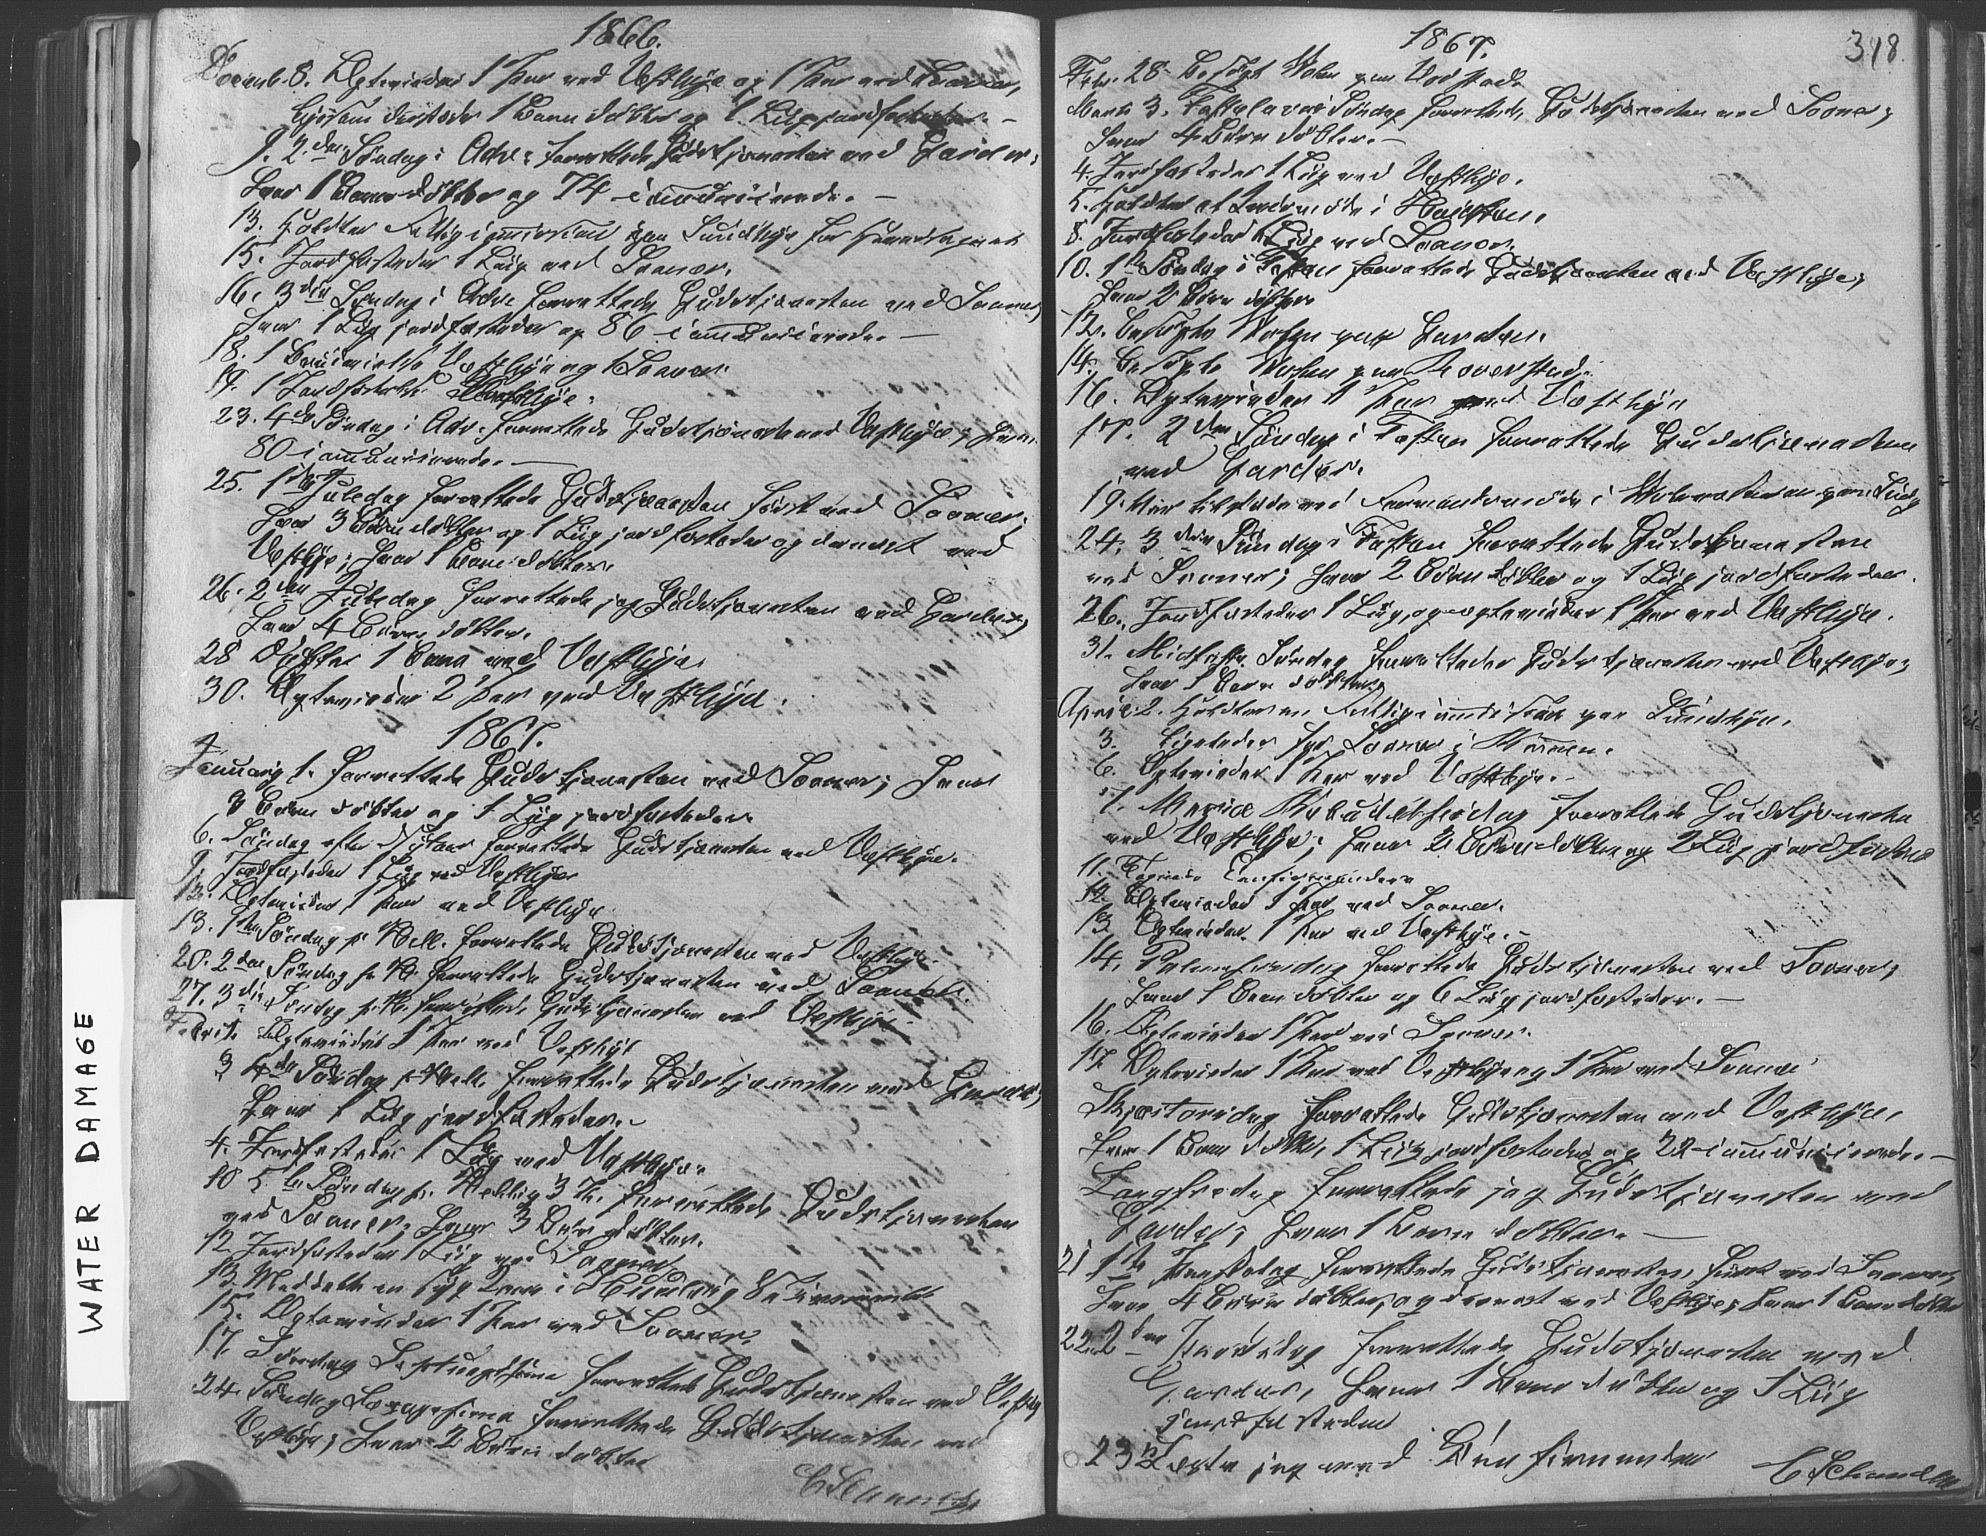 1866.
Decemb. 8. Ægtevieder 1 Par ved Vestbye og 1 Par ved Sooner,
ligesom dersteds 1 Barn døbtes og 1 Liig jordfæstedes. —
9. 2den Søndag i Adv: forrettede Gudstjenesten ved Garder;
hvor 1 Barn døbtes og 74 communicerede. —
13. Holdtes Fattigcommission paa
15. Jordfæstedes 1 Liig ved Sooner.
16. 3die Søndag i Adv: forrettede Gudstjenesten ved Sooner,
hvor 1 Liig jordfæstedes og 86 communicerede. —
18. 1 Vestbye og 1 Sooner.
19. 1 Vestbye.
23. 4de Søndag i Adv: forrettede Gudstjeneste ved Vestbye; hvor
80 communicerede. —
25. 1ste Juledag forrettede Gudstjenesten først ved Sooner;
hvor 3 Børn døbtes og 1 Liig jordfæstedes og dernæst ved
Vestbye; hvor 1 Barn døbtes.
26. 2den Juledag forrettede jeg Gudstjenesten ved Garder;
hvor 4 Børn døbtes.
28 Døbtes 1 Barn ved Vestbye.
30. Ægtevieder 2 Par ved Vestbye.
1867.
January 1. forrettede Gudstjenesten ved Sooner; hvor
3 Børn døbtes og 1 Liig jordfæstedes.
6. Søndag efter Nytaar forrettede Gudstjenesten ved Vestbye.
9. Jordfæstedes 1 Liig ved Vestbye
12. Ægtevieder 1 Par ved Vestbye
13. 1ste Søndag p. Hell. forrettede Gudstjenesten ved Vestbye.
20. 2den Søndag p. H. forrettede Gudstjenesten ved Sooner.
27. 3die Søndag p. H. forrettede Gudstjenesten ved Vestbye.
Ægtevieder 1 Par ved Vestbye
3 4de Søndag p. Hell. forrettede Gudstjenesten ved Garder;
hvor 1 Liig jordfæstedes. —
4. Jordfæstedes 1 Liig ved Vestbye.
10 5te Søndag p. Hellig 3 K. forrettede Gudstjenesten
ved Sooner, hvor 3 Børn døbtes.
12 Jordfæstedes 1 Liig ved Sooner
13 Meddelte en syg
15. Ægtevieder 1 Par ved Sooner.
17. Søndag Septuagesima forrettede Gudstjenesten ved Vestby
24. Søndag Sexagesima forrettede Gudstjenesten ved
Vestbye; hvor 2 Børn døbtes
1867.
318.
Febr. 28. besøgt Skolen paa
Marts 3. Fastelavns Søndag forrettede Gudstjenesten ved Sooner;
hvor 4 Børn døbtes. —
4. Jordfæstedes 1 Liig ved Vestbye.
5. Holdtes et i
8. Jordfæstedes 1 Liig ved Sooner.
10. 1ste Søndag i Fasten forrettede Gudstjenesten ved Vestbye;
hvor 2 Børn døbtes
12. besøgte Skolen paa Garder.
14. besøgte Skolen paa
16. Ægtevieder 1 Par ved Vestbye
17. 2den Søndag i Fasten forrettede Gudstjenesten
ved Garder.
19. tilstede ved Formandsmøde i
24. 3die Søndag i Fasten forrettede Gudstjenesten
ved Sooner; hvor 2 Børn døbtes og 1 Liig jordfæstedes.
26. Jordfæstedes 1 Liig, og ægtevieder 1 Par ved Vestbye.
31. Midfaste Søndag forrettedes Gudstjenesten ved Vestbye;
hvor 1 Barn døbtes
April 2. Holdtes en Fattigcommission paa
3. Ligeledes for Sooner i
6. Ægtevieder 1 Par ved Vestbye. —
7. Mariæ Bebudelsesdag forrettede Gudstjenesten
ved Vestbye; hvor 2 Børn døbtes og 2 Liig jordfæstedes
11. Confirmanderne
12. Ægtevieder 1 Par ved Sooner.
13 Ægtevieder 1 Par ved Vestbye. —
14. Palmesøndag forrettede Gudstjenesten ved Sooner;
hvor 1 Barn døbtes og 6 Liig jordfæstedes. —
16. Ægtevieder 1 Par ved Sooner.
17 Ægtevieder 1 Par ved Vestbye og 1 Par ved Sooner
Skjærtorsdag forrettede Gudstjenesten ved Vestbye,
hvor 1 Barn døbtes, 1 Liig jordfæstedes og 22 communicerede. —
Langfredag forrettede jeg Gudstjenesten ved
Garder; hvor 1 Barn døbtes. —
21 1ste Paaskedag forrettede Gudstjenesten, først ved Sooner,
hvor 4 Børn døbtes, og dernæst ved Vestbye; hvor 1 Barn døbtes
22. 2den Paaskedag forrettede Gudstjenesten ved
Garder, hvor 1 Barn døbtes og 1 Liig
jordfæstedes
23 Læste jeg med Confirmander
WATER DAMAGE